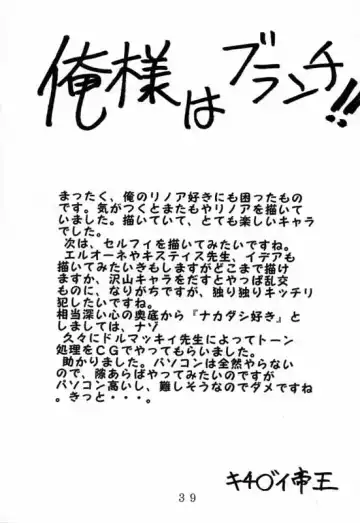 俺様はブランチ!!
まったく、俺のリノア好きにも困ったもの
です。気がつくとまたもやリノアを描いて
いました。描いていて、とても楽しいキャラ
でした。
次は、セルフィを描いてみたいですね。
エルオーネやキスティス先生、イデアも
描いてみたいきもしますがどこまで描け
ますか、沢山キャラをだすとやっぱ乱交
ものに、なりがちですが、独り独りキッチリ
犯したいですね。
相当深い心の奥底から『ナカダシ好き』と
しましては、ナゾ
久々にドルマッキィ先生によってトーン
処理をCGでやってもらいました。
助かりました。パソコンは全然やらない
ので、隙あらばやってみたいのですが
パソコン高いし、難しそうなのでダメですね
。きっと・・・。
キ4○イ帝王
39